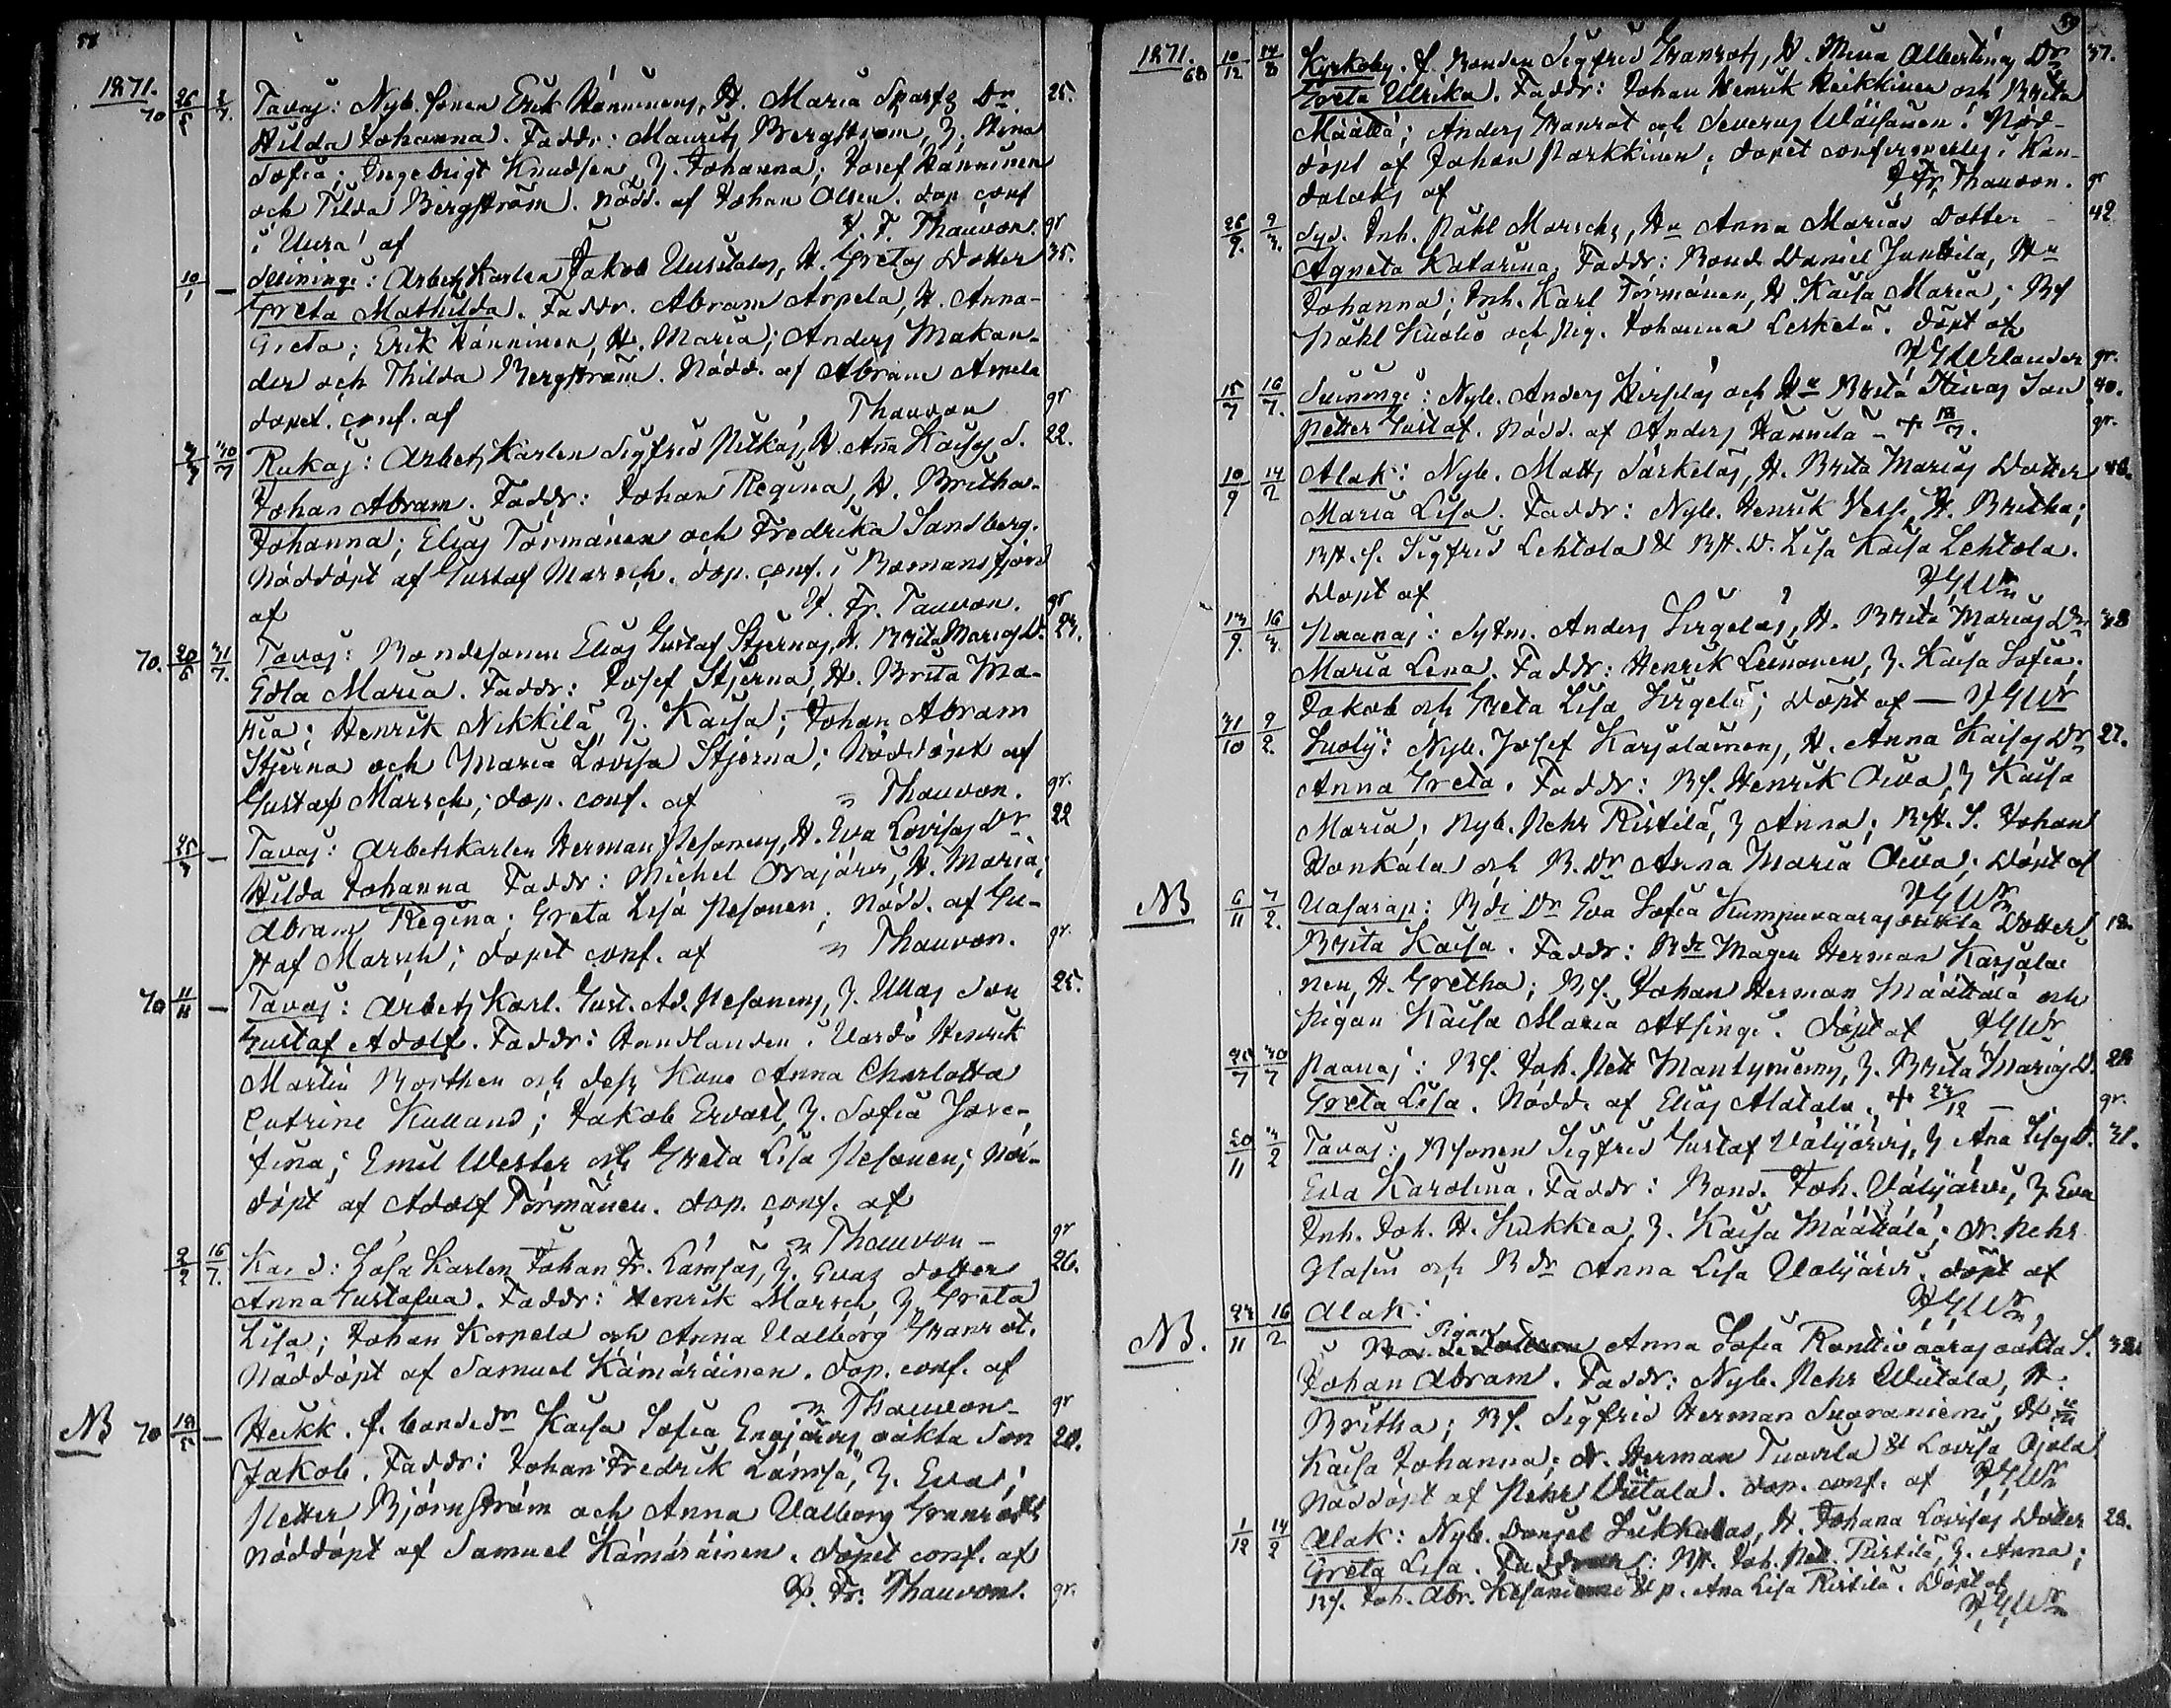 58
1871.
70 26/5 2/7. Tavaj: Nyb. sonen Erik Hänninens, H. Maria Sparfs Dr. 25.
Hilda Johanna. Faddr: Maurits Bergström, H. Stina
Sofia; Ingebrigt Knudsen, H. Johanna; Josef Hänninen
och Tilda Bergström. Nödd. af Johan Olsen. dop. conf
i Uura af H. F. Thauvon. gr
10/1 — Suiningi: Arbets Karlen Jakob Uusitalos, H. Gretas Dotter 35.
Greta Mathilda. Faddr. Abram Arpela, H. Anna-
Greta; Erik Hänninen, H. Maria; Anders Makan-
der och Thilda Bergström. Nödd. af Abram Arpela
dopet. conf. af Thauvon gr
30/7 Rukaj: Arbets Karlen Sigfrid Pitkäs, H. Anna Kaisas S. 22.
Johan Abram. Faddr: Johan Regina, H. Britha-
Johanna; Elias Törmänen och Fredrika Sandberg.
Nöddöpt af Gustaf Marsch. dop. conf. i Bomansfjord
af H. Fr. Tauvon. gr
70. 20/5 31/7. Tavaj: Bondesonen Elias Gustaf Stjernas, H. Brita Marias D. 23.
Edla Maria. Faddr: Josef Stjerna, H. Brita Ma-
ria; Henrik Nikkilä, H. Kaisa; Johan Abram
Stjerna och Maria Lovisa Stjerna; Nöddöpt af
Gustaf Marsch; dop. conf. af " Thauvon. gr.
25/3 — Tavaj: Arbetskarlen Herman Pesonens, H. Eva Lovisas Dr 22
Hilda Johanna Faddr: Michel Orajärvi, H. Maria;
Abram Regina; Greta Lisa Pesonen; Nödd. af Gu-
staf Marsch; dopet conf. af " Thauvon. gr.
70 11/11 — Tavaj: Arbets Karl. Gust. Ad. Pesonens, H. Ullas Son 25.
Gustaf Adolf. Faddr: Handlanden i Vardö Henrik
Martin Borthen och dess Kona Anna Charlotta
Catrine Kulland; Jakob Ervast, H. Sofia Jose-
fina; Emil Wester och Greta Lisa Pesonen; Nöd-
döpt af Adolf Törmänen. dop. conf. af
" Thauvon — gr
2/2 16/7. Kand: Lösa Karlen Johan Fr. Lämsäs, H. Evas dotter 26.
Anna Gustafva. Faddr: Henrik Marsch, H. Greta
Lisa; Johan Korpela och Anna Valborg Granrot.
Nöddöpt af Samuel Kämäräinen. dop. conf. af
" Thauvon — gr
NB 70 — Heikk. f. bondedr Kaisa Sofia Enojärvis oäkta Son 20.
Jakob. Faddr: Johan Fredrik Lämsä, H. Eva;
Petter Björnström och Anna Valborg Granroth
Nöddöpt af Samuel Kämäräinen. dopet conf. af
H. Fr. Thauvon. gr.
59
1871.
68 10/12 Kyrkoby. f. Bonden Sigfrid Granrots, H. Mina Albertinas Dr 37.
Greta Ulrika. Faddr: Johan Henrik Heikkinen och Brita
Määttä; Anders Granrot och Severus Wäisänen. Nöd-
döpt af Johan Parkkinen; dopet confirmerles i Kan-
dalaks af H Fr. Thauvon. gr
26/9. 2/3. Syd. Inh. Påhl Marschs, Hu Anna Marias Dotter 42
Agneta Katarina. Faddr: Bond. Daniel Junttila, Hu
Johanna; Inh. Karl Törmänen, H. Kaisa Maria; Bs
Påhl Kuolio och Pig. Johanna Leskelä. döpt af
gr.
15/7 16/7. Suiningi: Nyb. Anders Hirstös och Hu Brita Stinas Son 40.
Petter Gustaf. Nödd. af Anders Hannula — + 18/7. gr.
10/9 14/2 Alak: Nyb. Matts Särkeläs, H. Brita Marias Dotter 40.
Maria Lisa. Faddr: Nyb. Henrik Vesi, H. Britha;
Bst. S. Sigfrid Lehtola & Bst. D. Lisa Kaisa Lehtola.
Döpt af
13/9. 16/3. Paanaj: Sytm. Anders Sirgeläs, H. Brita Marias Dr 38
Maria Lena. Faddr: Henrik Leinonen, H. Kaisa Sofia;
Jakob och Greta Lisa Sirgelä; Döpt af —
31/10 9/2. Suolij: Nyb. Josef Karjalainens, H. Anna Kaisas Dr 27.
Anna Greta. Faddr: Bs. Henrik Oiva, H. Kaisa
Maria; Nyb. Pehr Ristilä, H Anna; Bst. S. Johan
Honkala och B. Dr Anna Maria Oiva; Döpt af
NB 6/11 7/2. Vasarap: Bdr Dr Eva Sofia Kumpuvaaras oäkta Dotter 18.
Brita Kaisa. Faddr: Bde Mågen Herman Karjalai
nen, H. Gretha; Bs. Johan Herman Määttälä och
Pigan Kaisa Maria Atsingi. Döpt af
30/7 Paanaj: Bs. Joh. Pett Mäntyniemis, H. Brita Marias D. 28
Greta Lisa. Nödd. af Elias Alatalo. + 24/12 — gr.
20/11 3/2 Tavaj: Bsonen Sigfrid Gustaf Välijärvis, H. Ana Lisas D. 31.
Eva Karolina. Faddr: Bond. Joh. Välijärvi, H. Eva
Inh. Joh. H. Kukkea, H. Kaisa Määttälä; Dr. Pehr
Glasin och B dr Anna Lisa Välijärvi. döpt af
NB. 16/2 Alak:
Pigan Anna Sofia Ronttivaaras oäkta S. 32.
Johan Abram. Faddr: Nyb. Pehr Wiitala, H.
Britha; Bs. Sigfrid Herman Suoraniemi, Hu
Kaisa Johanna; Dr. Herman Tuovila & Lovisa Ojala
Nöddöpt af Pehr Viitala. dop. conf. af
1/12 14/2 Alak: Nyb. Daniel Sukkalas, H. Johana Lovisas Dotter 28.
Greta Lisa. Faddrar: Joh. Pett. Ristilä, H. Anna;
Bs. Joh. Abr. Kesäniemi & p. Ana Lisa Ristilä. Döpt af